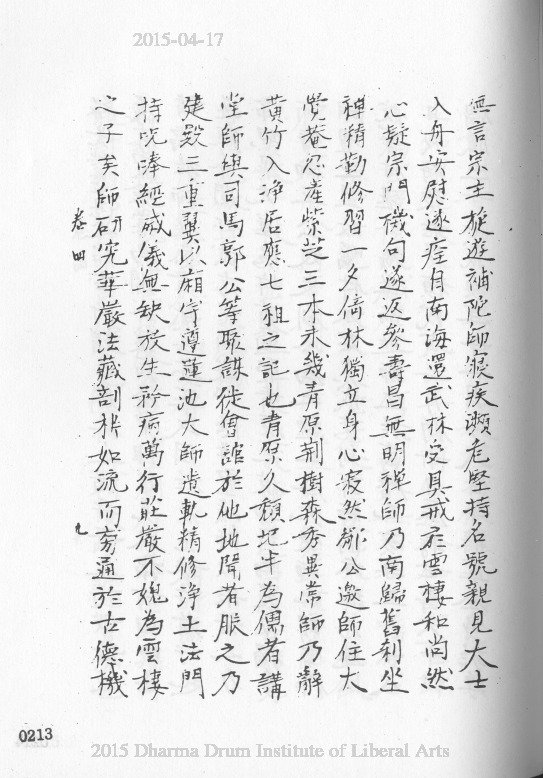 2015-04-17
無言宗主旋遊補陀師寢疾瀕危堅持名號親見大士
入舟安慰遂痊自南海還武林受具戒於雲棲和尚然
心疑宗門機句遂返參壽昌無明禪師乃南歸舊剎坐
神精勤修習一夕倚林獨立身心寂然鄒公邀師住大
覺菴忽產紫芝三本未幾青原荊樹森秀異常師乃辭
黃竹入淨居應七祖之記也青原久頹圮半為儒者講
堂師與司馬郭公等聚謀徙會館於他地聞者服之乃
建殿三重翼以廂宇遵蓮池大師遺軌精修淨土法門
持咒唪經威儀無缺放生矜病萬行莊嚴不媿為雲棲
之子矣師研究華嚴法藏剖析如流而旁通於古德機
卷四
九
0213
2015 Dharma Drum Institute of Liberal Arts